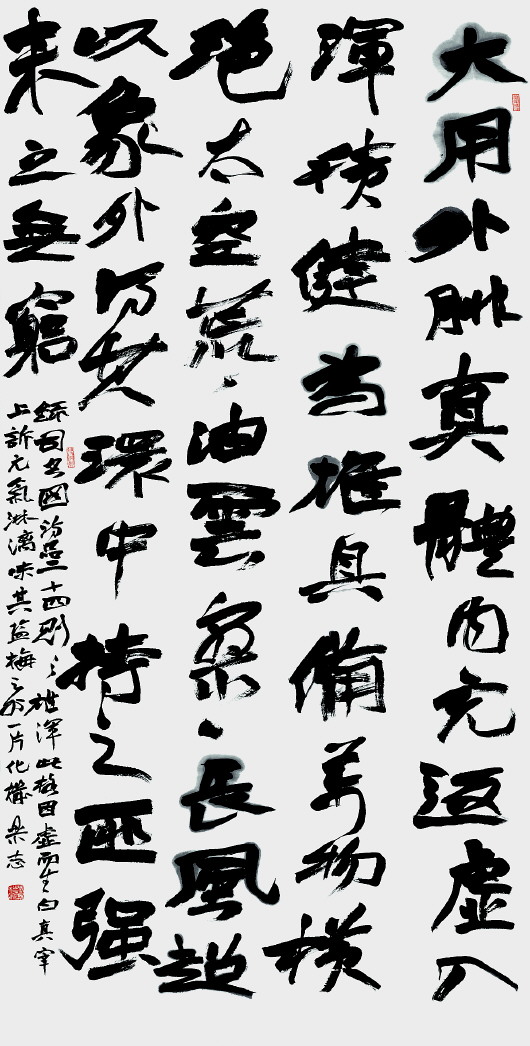 大用外腓真體内充返虛入
渾積健為雄具備萬物橫
絕太空荒々油雲寥々長風超
以象外得其環中持之匪强
来之無窮
司空圖詩品二十四則之雄渾此格因虛而生真宰
上訴元氣淋漓味其鹽梅之外一片化機志